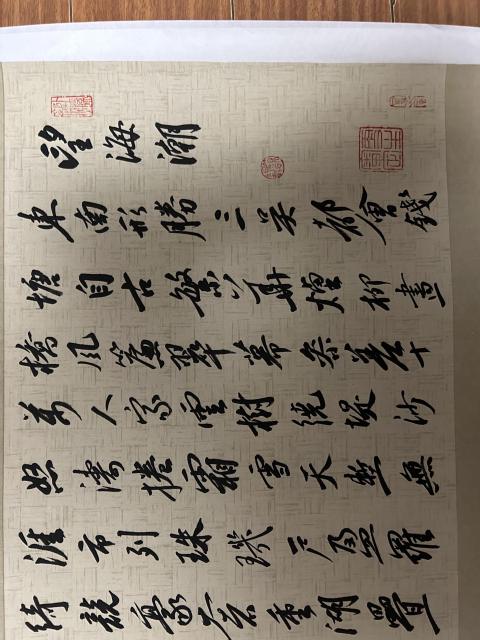 望海潮
東南形勝三吳都會錢
塘自古繁華煙柳畫
橋風簾翠幕參差十
萬人家雲樹繞堤沙
怒濤捲霜雪天塹無
涯市列珠璣戶盈羅
綺競豪奢重湖疊